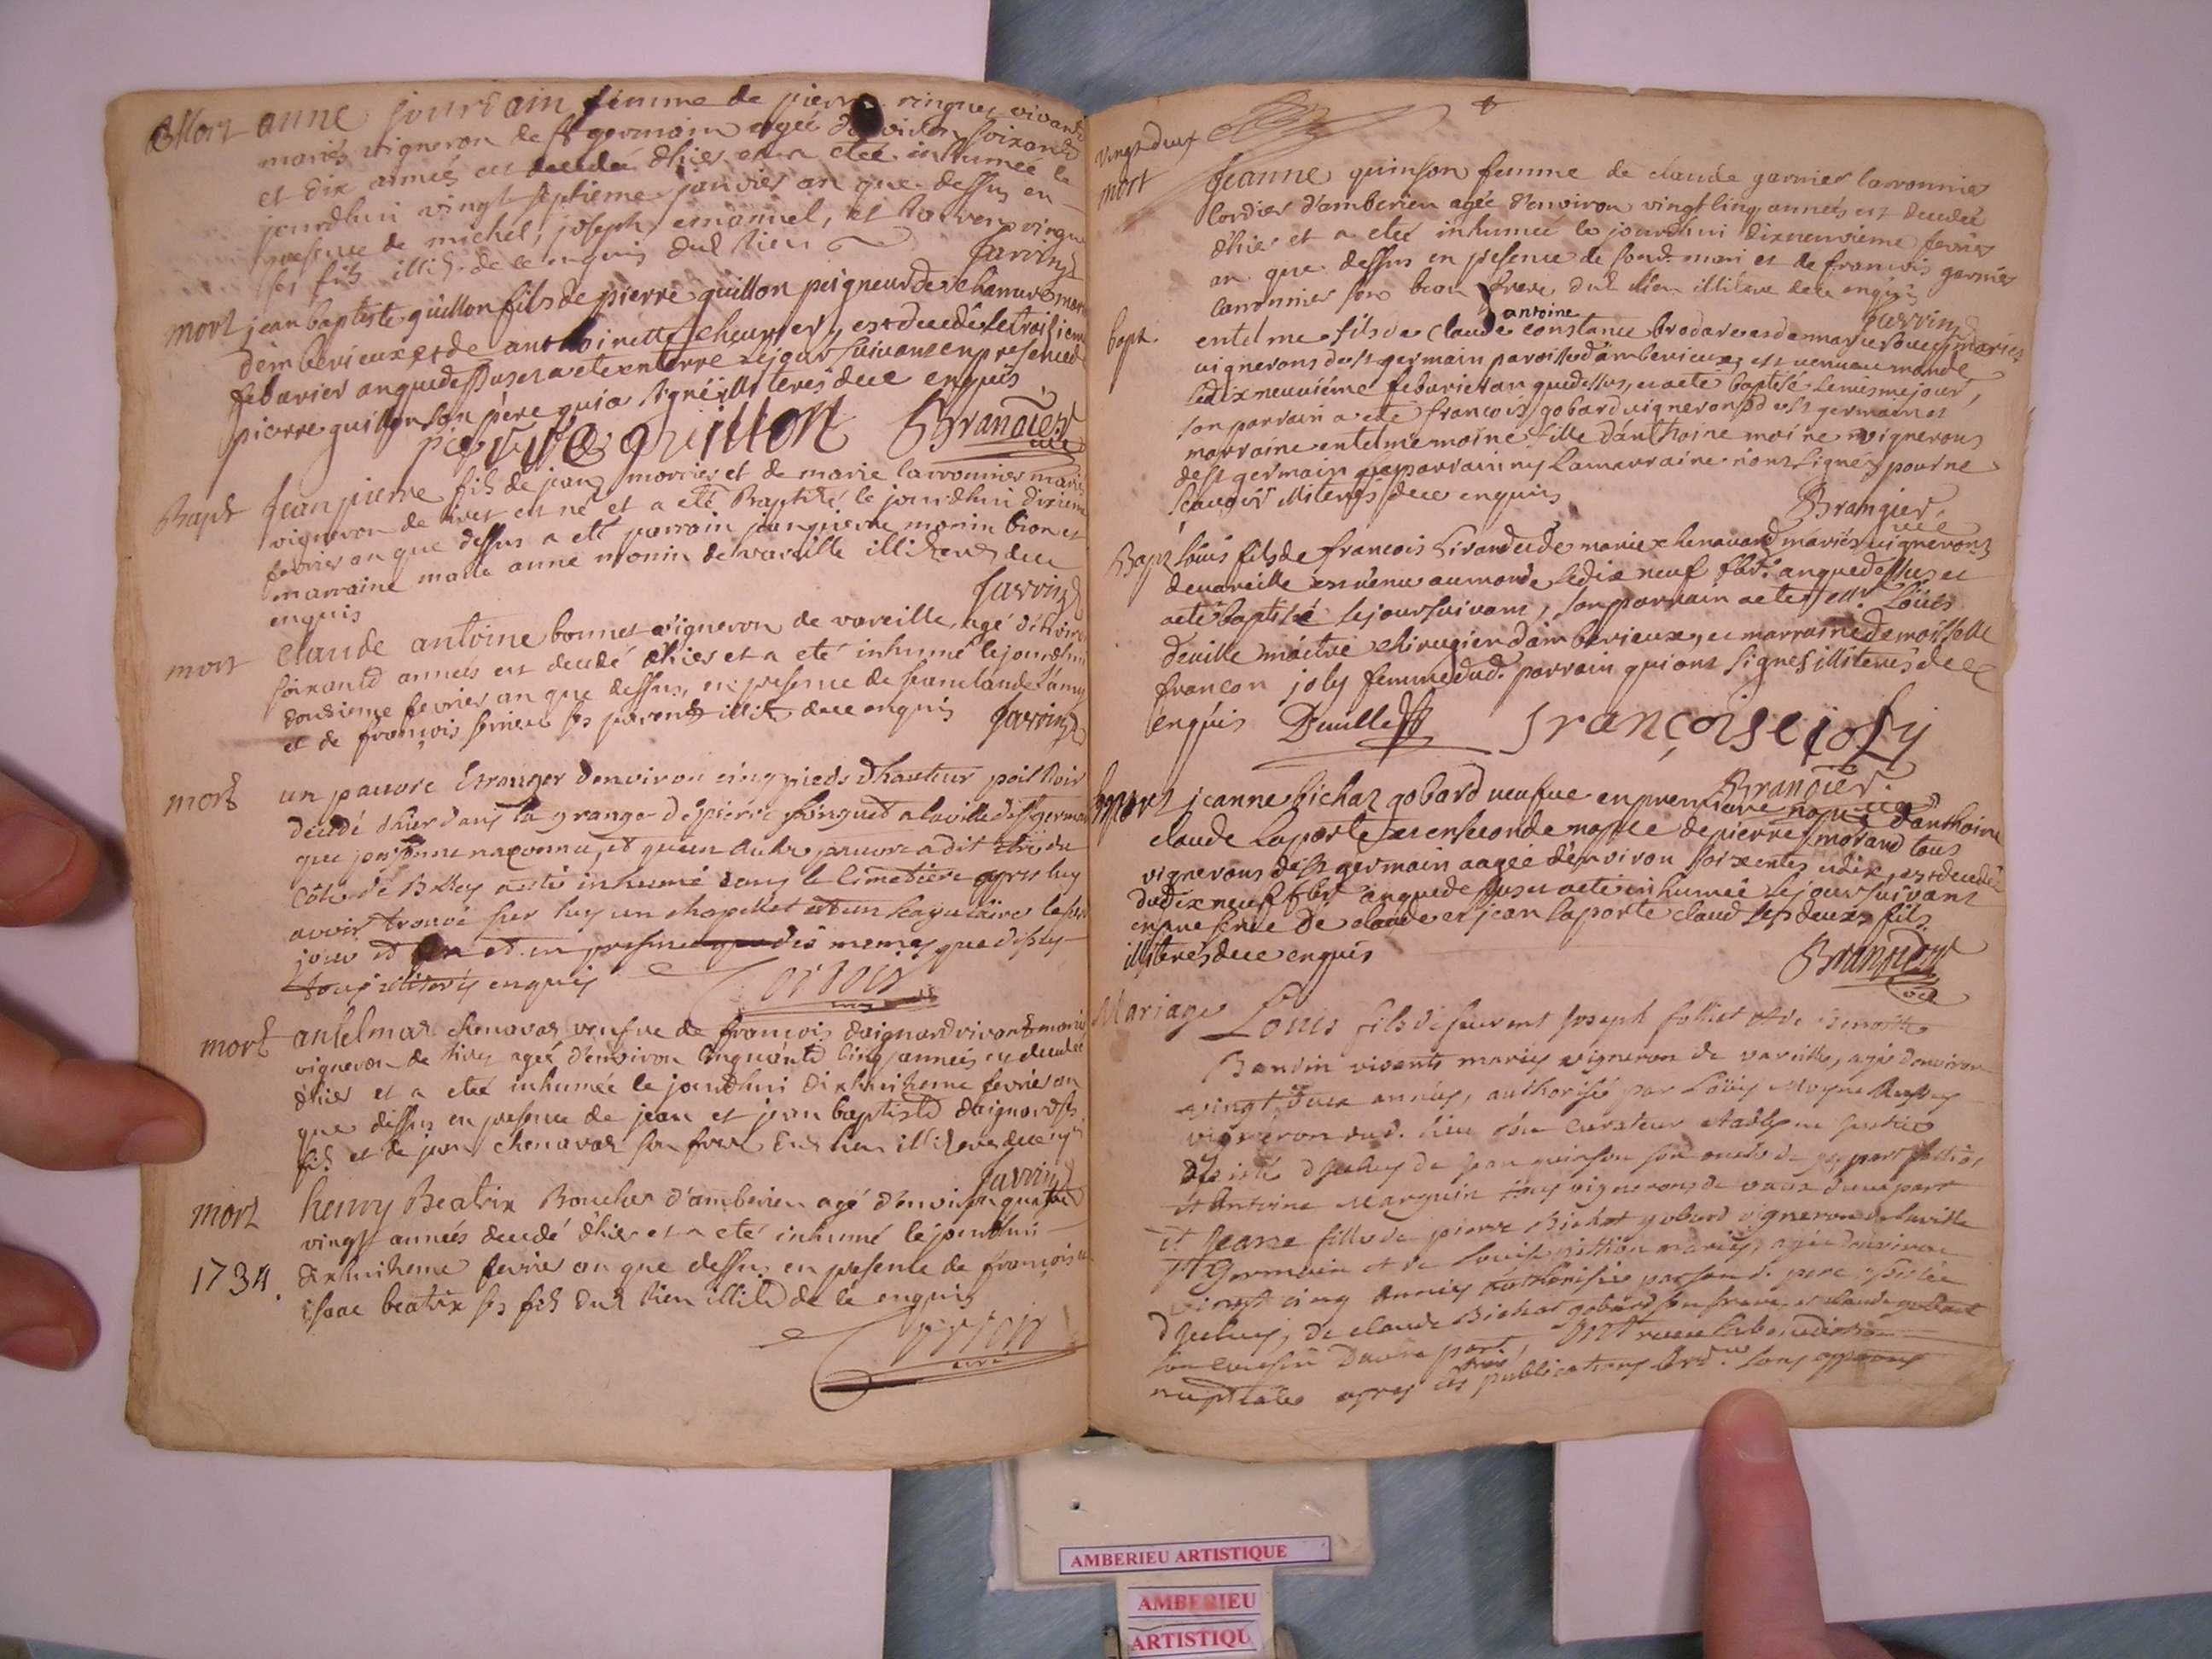 Mort anne jourdain femme de pierre ringuet vivants
mariés vigneron de st germain agée d'environ soixante
et dix années est decedée d'hier et a eté inhumée le
jourdhui vingt septieme janvier an que dessus en
presence de michel, joseph, emanuel, et
ses fils illit. de ce enquis dud lieu
Jarrin
mort jean baptiste guillon fils de pierre guillon peigneur de chanvre
d'emberieux et de anthoinette est decedé le troisiem
febvrier an que dessus et a eté enterré le jour suivant en presence
pierre guillon son père qui a signé illiteres de ce enquis
pierre guillon Brangier
vic
Bapt Jean pierre fils de jean morcier et de marie laronnier mariés
vigneron de tiret est né et a eté Baptizé le jourdhui dixieme
fevrier an que dessus a eté parrain jean pierre monin et
marraine marie anne monin de vareille illiteres de ce
enquis Jarrin
mort claude antoine bonnet vigneron de vareille, agé d'environ
soixante années est decedé d'hier et a eté inhumé le jourdhui
douzieme fevrier an que dessus, en presence de jean claude
et de françois ses parents illit. de ce enquis Jarrin
mort un pauvre Etranger denviron cinq pieds d'hauteur poil noir
decedé d'hier dans la grange de pierre ringuet a la ville de st germain
que personne na connu, et quun autre pauvre a dit etre du
Côté de Belley a eté inhumé dans le Cimetiere apres luy
avoir trouvé sur luy un chapellet et un scapulaire lesd.
jour et an et en presence des memes que dessus
tous illiterés enquis
mort antelmaz chenavaz veufve de françois daignard vivants mariés
vigneron de tirey ageé d'environ cinquante cinq années est decedée
d'hier et a eté inhumée le jourdhui dixhuitieme fevrier an
que dessus en presence de jean et jean baptiste daignard ses
fils et de jean chenavaz son frere dud lieu illiteres de ce enquis
Jarrin
mort henry Beatrix Boucher d'amberieu agé d'environ quatre
vingt années decedé d'hier et a eté inhumé le jourdhui
1734. dixhuitieme fevrier an que dessus en presence de françois
isaac beatrix ses fils dud lieu illit. de ce enquis
curé
vingt deux
mort Jeanne quinson femme de claude garnier laronnier
cordier d'amberieu agée d'environ vingt cinq années est decedée
d'hier et a eté inhumée le jourdhui dixneuvieme fevrier
an que dessus en presence de sond. mari et de francois garnier
laronnier son beau frere dud lieu illitere de ce enquis
Jarrin
antoine
bapt. entelme fils de claude constance brodard et de marie mariés
vignerons de st germain paroisse d'amberieux est venu au monde
le dix neuvième febvrier an que dessus, et a eté baptisé le mesme jour,
son parrain a eté francois gobard vigneron de st germain et
marraine entelme moine fille d'anthoine moine vignerons
de st germain le parrain ny la marraine n'ont signé pour ne
scavoir illiterés de ce enquis
Brangier,
vic
Bapt Louis fils de francois et de marie chenavard mariés vignerons
de vareille est venu au monde le dix neuf fbr. an que dessus et
a eté baptisé le jour suivant, son parrain a eté sr. Loüis
deville maître chirurgien d'amberieux, et marraine demoiselle
francon joly femme dud. parrain qui ont signés illiteres de ce
enquis Deville francoise joly
Brangier
vic
mort jeanne bichaz gobard veufve en premiere nopce d'anthoine
claude laporte et en seconde nopce de pierre morand tous
vignerons de st germain aagée d'environ soixente et dix, est decedée
du dix neuf fbr an que dessus et a eté inhumée le jour suivant
en presence de claude et jean laporte claud ses deux fils
illiterés de ce enquis
Brangier
vic
Mariage Louis fils de fut vivent Joseph folliet et de Benoitte
Baudin vivants mariés vigneron de vareille, agé denviron
vingt deux années, authorisé par Loüis Moyne
vigneron dud. lieu son curateur etably en justice
assisté d'jceluy de jean quinson son oncle de part
et Antoine Marguin tous vignerons de vaux d'une part
Et Jeanne fille de pierre Bichat gobard vigneron de la ville
st Germain et de mariés, agée denviron
vingt cinq années authorisée par sond. pere assistée
d'jceluy, de claude Bichat gobard son frere, et claude gobard
son cousin d'autre part, ont receu la benediction
nuptiale apres les trois publications ord.res sans oppositions
AMBERIEU ARTISTIQUE
AMBERIEU
ARTISTIQU